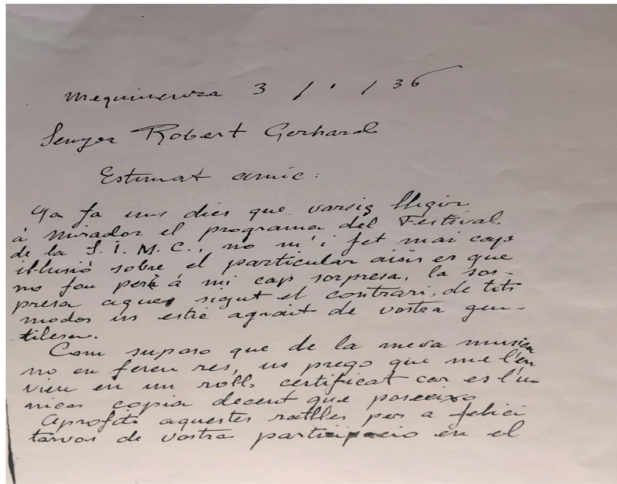 Mequinenza 3 / 1 / 36
Senyor Robert Gerhard
Estimat amic:
Ya fa uns dies que varsig lligir
á Mirador el programa del Festival
de la S.I.M.C., no m'i fet mai cap
ilusió sobre el particular aisis es que
no fou però á mi cap sorpresa, la sor-
presa agues sigut el contrari, de tots
modos us estic agrait de vostra gen-
tilesa.
Com suposo que de la meva musica
no en fereu res, us prego que me l'en
vieu en un rollo certificat car es l'u
nica copia decent que poseeixo
Aprofito aquestes ratlles per a felici
tarvos de vostra participacio en el